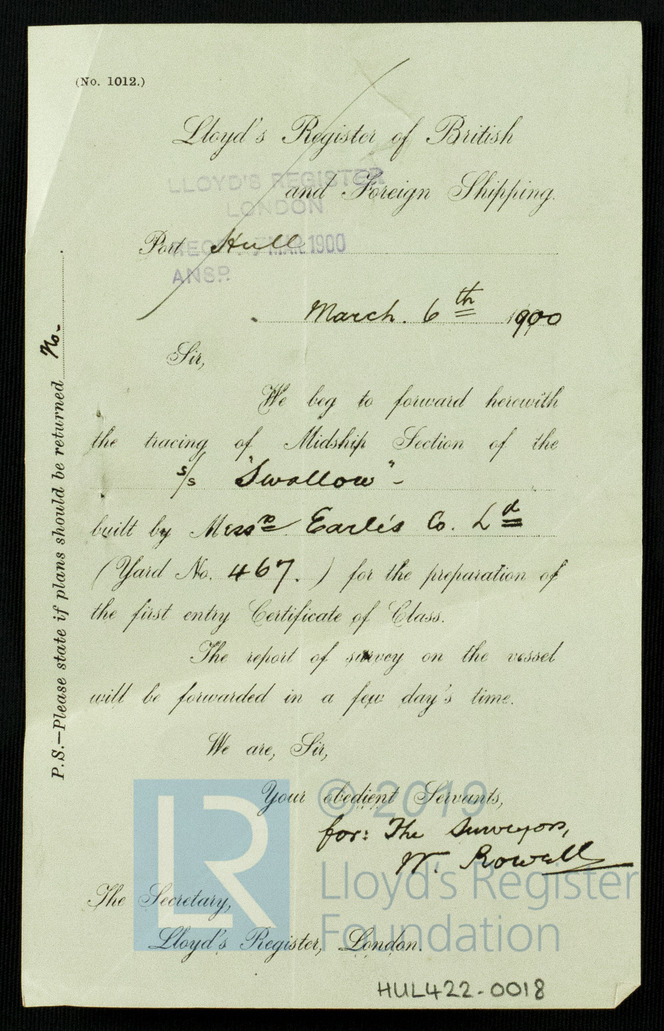 (No. 1012.)
Lloyd's Register of British
and Foreign Shipping.
LLOYD'S REGISTER
LONDON
MAR. 1900
Port Hull
March. 6th 1900
Sir,
We beg to forward herewith
the tracing of Midship Section of the
s/s "Swallow"-
built by Messrs Earle's Co. Ld
(Yard No. 467.) for the preparation of
the first entry Certificate of Class.
The report of survey on the vessel
will be forwarded in a few day's time.
We are, Sir,
Your obedient Servants,
for: The Surveyors,
W. Rowell
The Secretary,
Lloyd's Register, London.
P.S.—Please state if plans should be returned No-
LR
© 2019
Lloyd's Register
Foundation
HUL422-0018